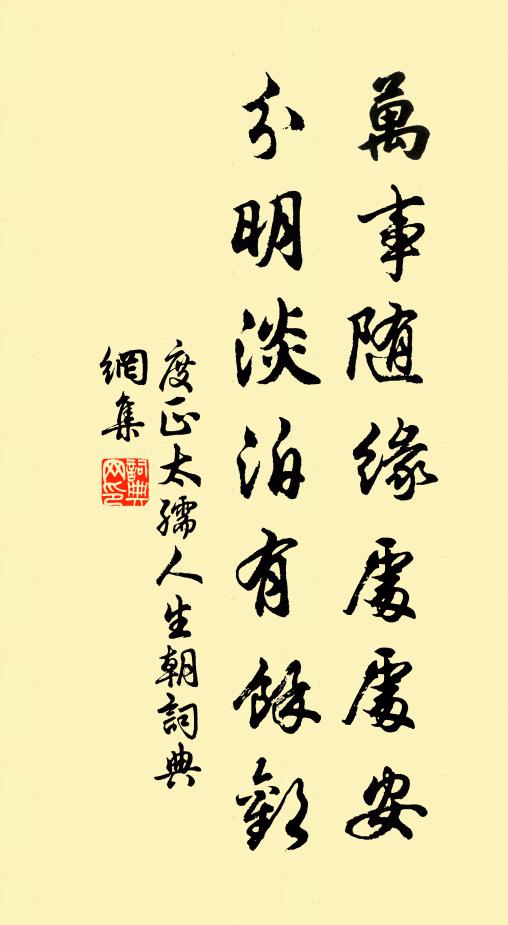 萬事随緣處處安
分明淡泊有餘歡
度正太孺人生朝詞典
網集
詞典网印